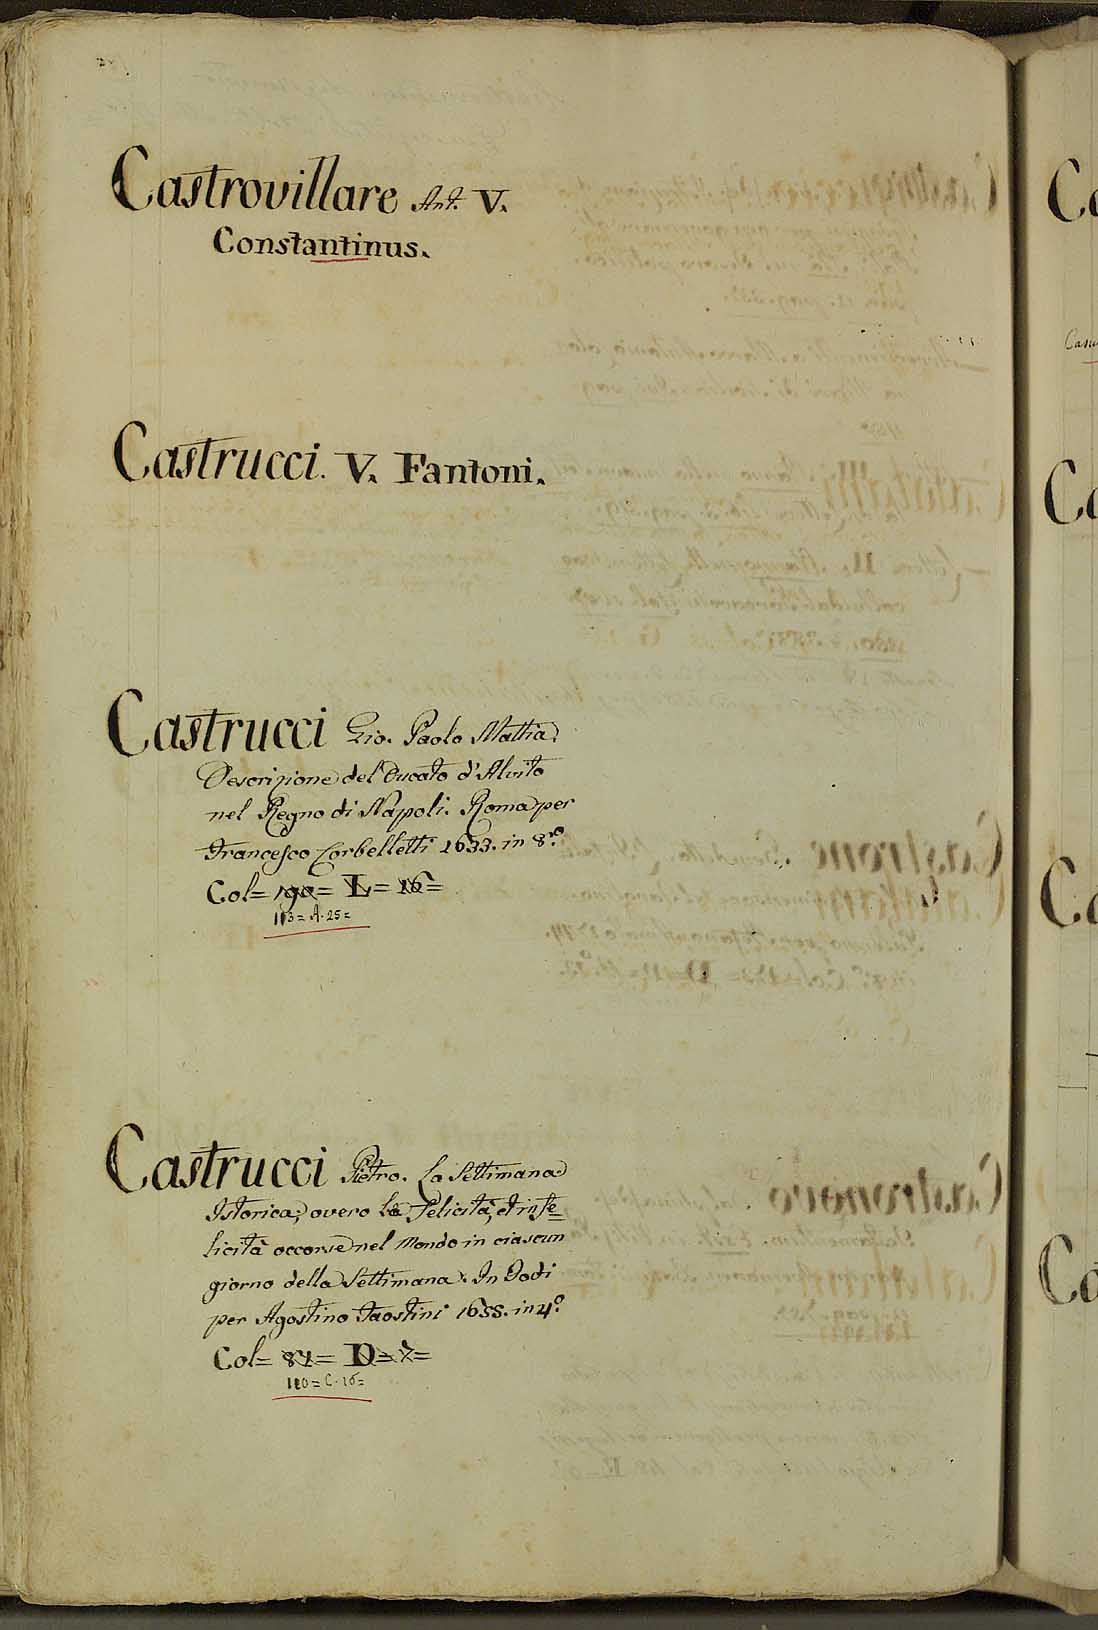 Castrovillare Ant. V.
Constantinus.
Castrucci. V. Fantoni.
Castrucci Gio. Paolo Mattia.
Descrizione del Ducato d'Alvito
nel Regno di Napoli. Roma per
Francesco Corbelletti 1633. in 8.º
Col= 190= L= 16=
113= A. 25=
Castrucci Pietro. La Settimana
Istorica, overo la Felicità, et infe=
licità occorse nel Mondo in ciascun
giorno della Settimana. In Todi
per Agostino Faostini 1655. in 4.º
Col= 84= D= 7=
110= C. 16=